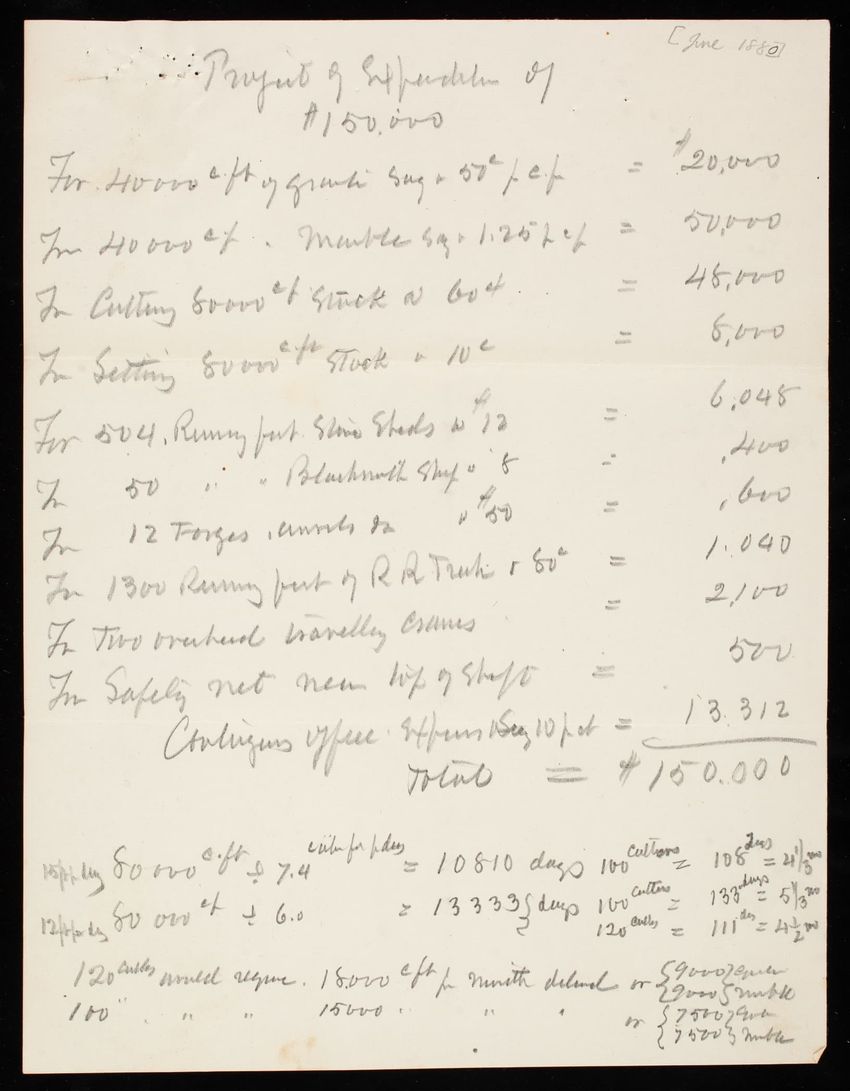 [June 1880]
Project of Expenditure of
$150,000
For 40000 c.ft of granite say @ 50c p c.f. = $20,000
For 40000 c.f. . Marble say @ 1.25 p c.f = 50,000
For Cutting 80000 c.f Stock @ 60c = 48,000
For Setting 80000 c.ft Stock @ 10c = 8,000
For 504. Running feet Stone Sheds @ $12 = 6,048
For 50 " " Blacksmith Shop @ 8 = ,400
For 12 Forges, anvils &c @ $50 = ,600
For 1300 Running feet of R R Track @ 80c = 1,040
For Two overhead travelling cranes = 2,100
For Safety net near top of Shaft = 500
office Expenses Say 10 p ct = 13.312
Total = $150.000
15 p day 80000 c.ft ÷ 7.4 p day = 10810 days 100 Cutters = 108 days = 4 1/3 mo
12 p day 80000 c.f ÷ 6.0 = 13333 1/3 days 100 Cutters = 133 days = 5 1/3 mo
120 Cutters = 111 days = 4 1/2 mo
120 Cutters would require . 18000 c ft p month delivered or { 9000 } Granite
{ 9000 } Marble
100 " . " " 15000 " " " or { 7500 } Gran
{ 7500 } Marble